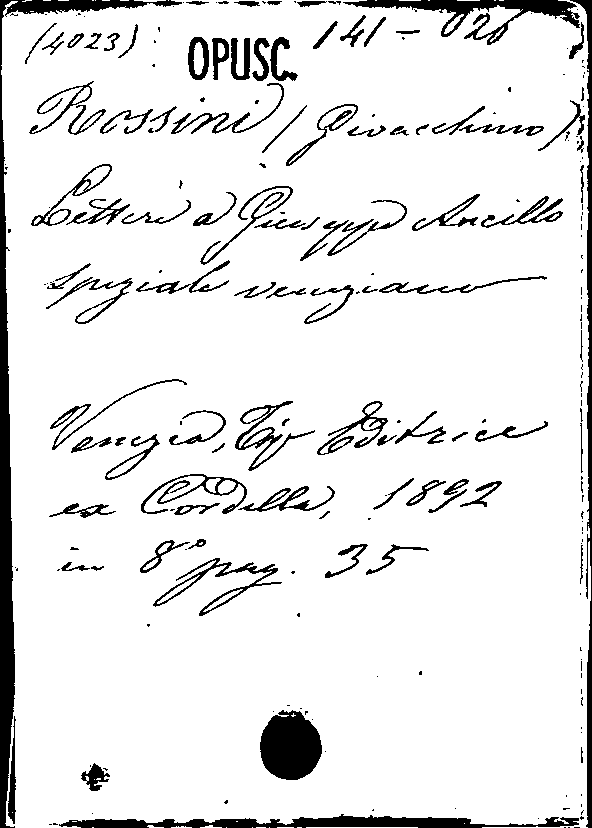 (4023) OPUSC. 141-026
Rossini (Gioacchino)
Lettere a Giuseppe Ancillo
speziale veneziano
Venezia, Tip Editrice
ex Cordella, 1892
in 8° pag. 35